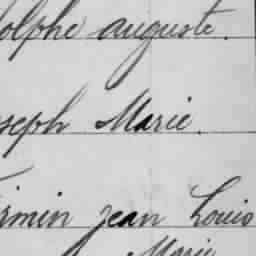 olphe auguste.
seph Marie.
irmin jean Louis
Marie